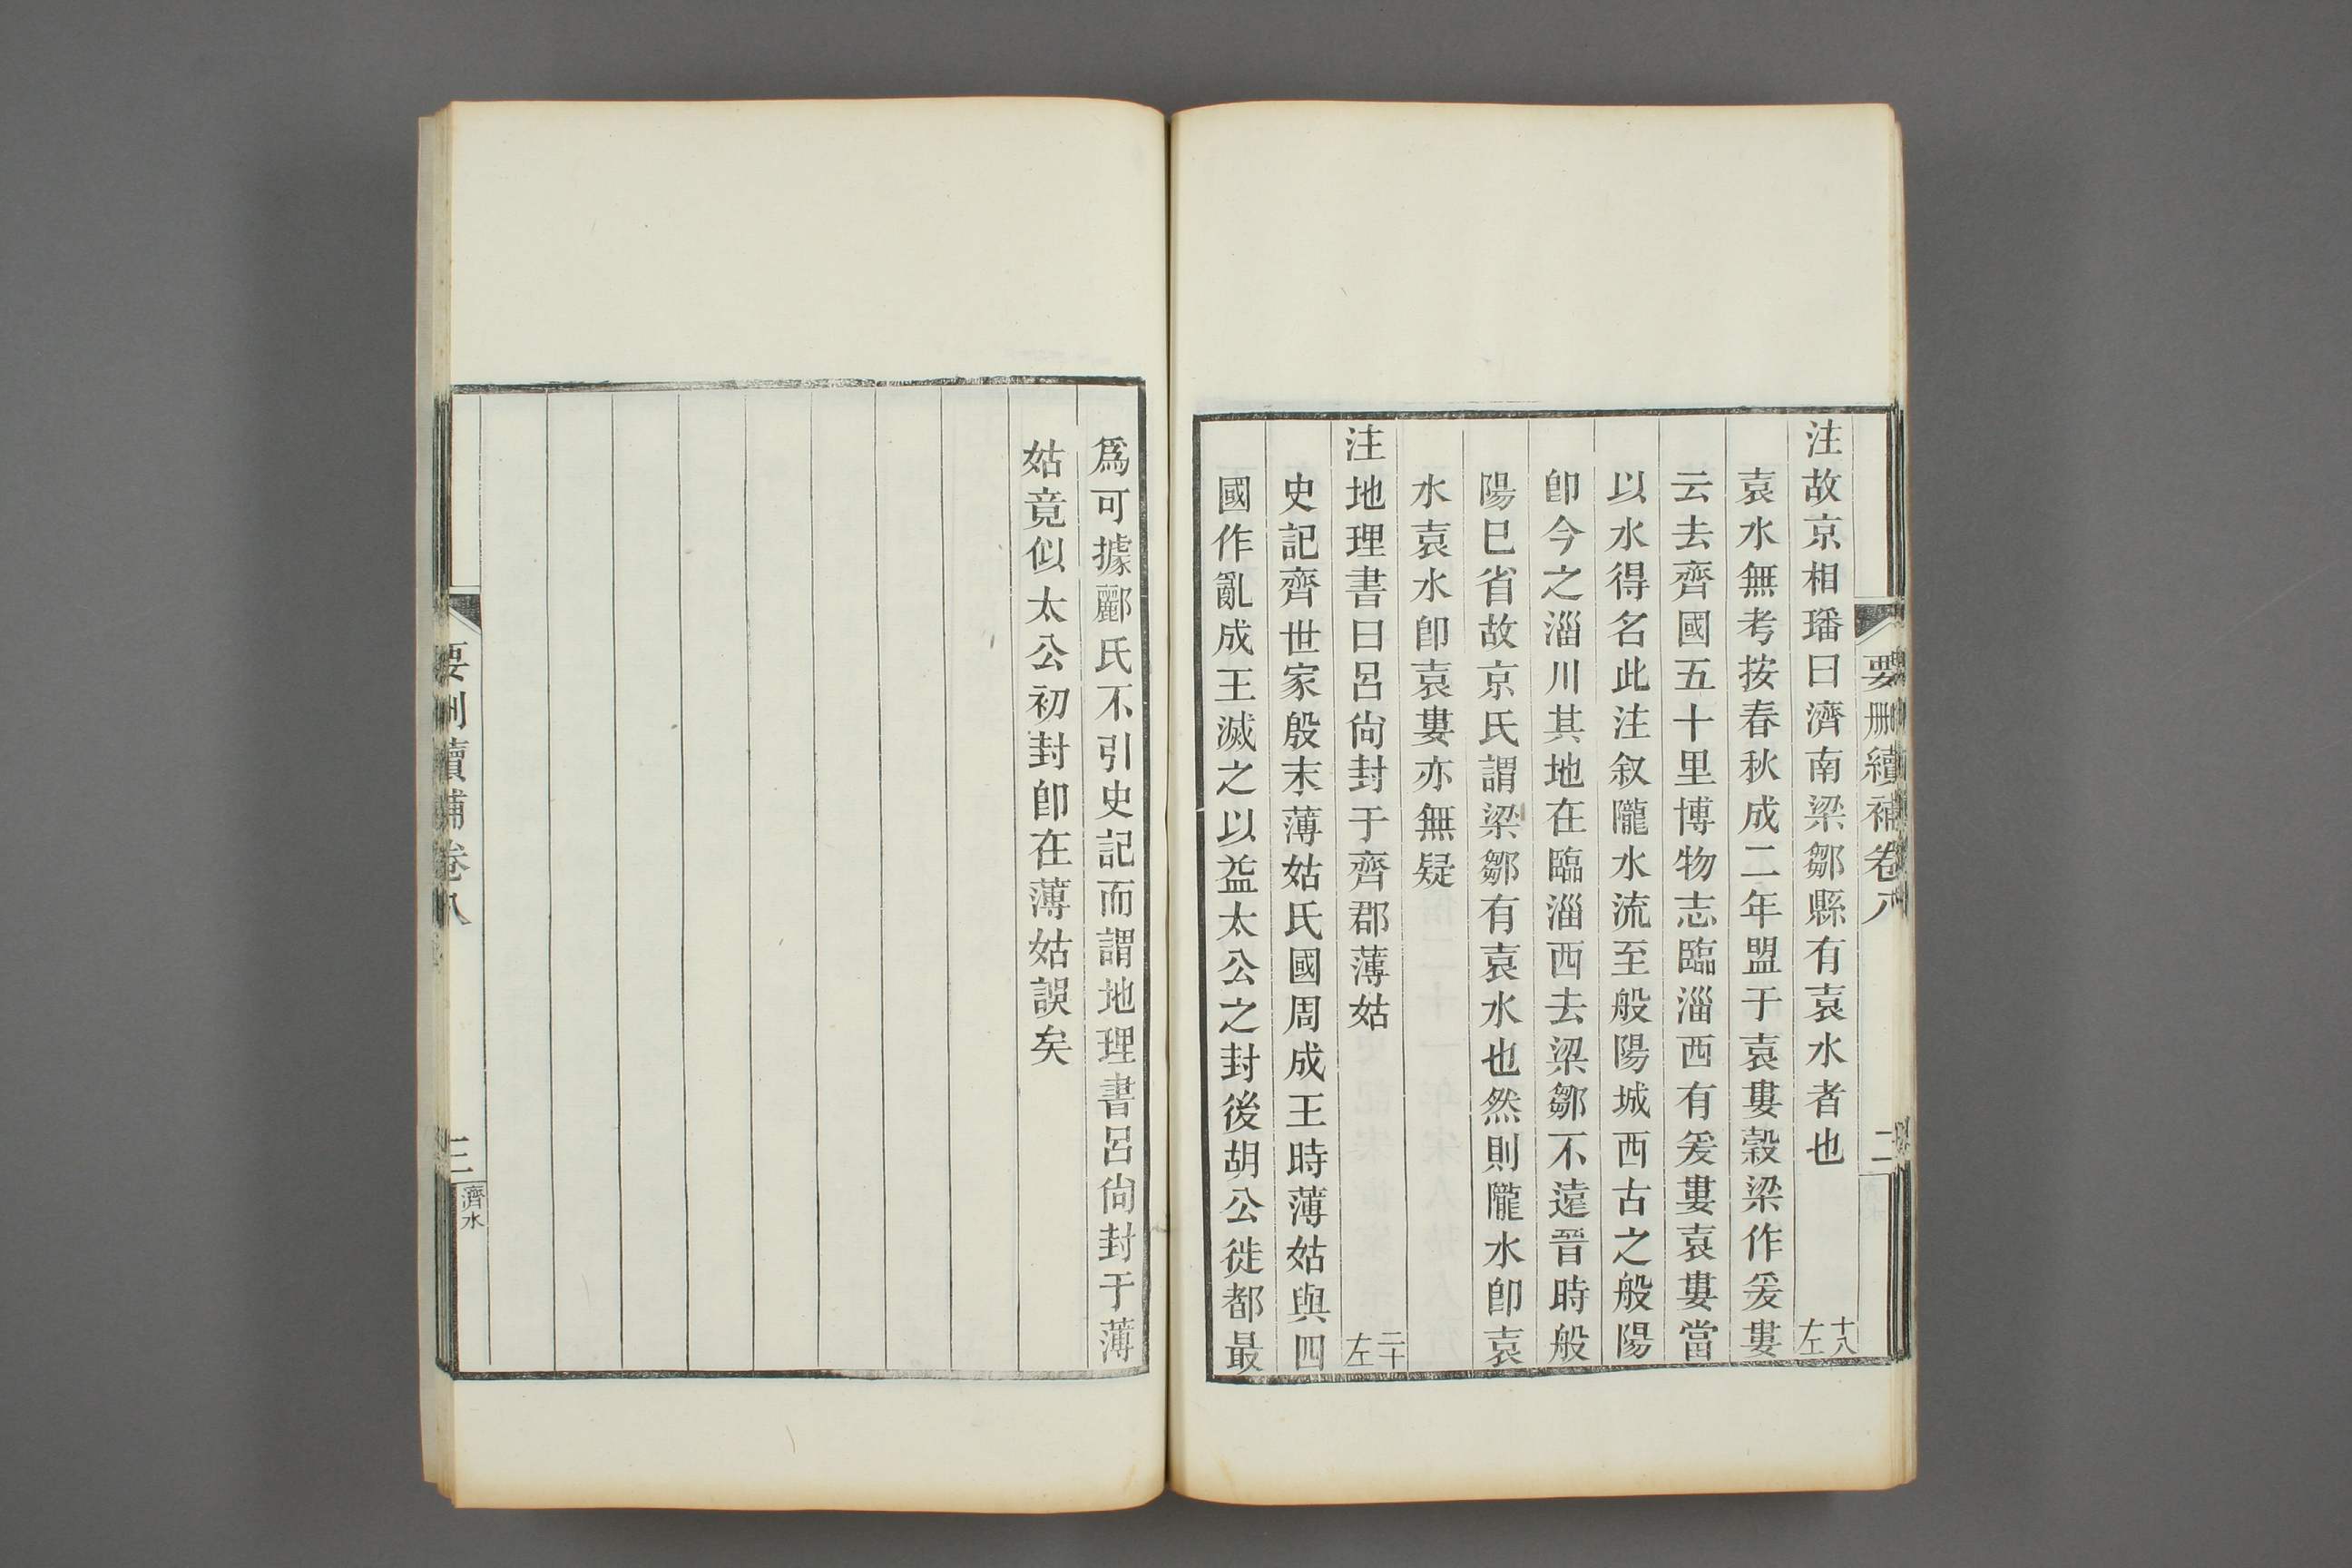 要刪續補卷八
二
注故京相璠曰濟南梁鄒縣有袁水者也 十八左
袁水無考按春秋成二年盟于袁婁穀梁作爰婁
云去齊國五十里博物志臨淄西有爰婁袁婁當
以水得名此注叙隴水流至般陽城西古之般陽
卽今之淄川其地在臨淄西去梁鄒不遠晉時般
陽已省故京氏謂梁鄒有袁水也然則隴水卽袁
水袁水卽袁婁亦無疑
注地理書曰呂尙封于齊郡薄姑 二十左
史記齊世家殷末薄姑氏國周成王時薄姑與四
國作亂成王滅之以益太公之封後胡公徙都最
爲可據酈氏不引史記而謂地理書呂尙封于薄
姑竟似太公初封卽在薄姑誤矣
要刪續補卷八
三
濟水